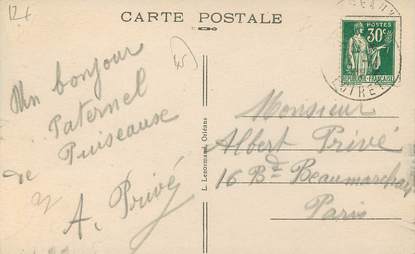 12f
CARTE POSTALE
Un bonjour
Paternel
de Puiseause
A. Privé
L. Lenormand, Orléans
POSTES
30c
LOIRET
Monsieur
Albert Privé
16 Bd Beaumarchais
Paris